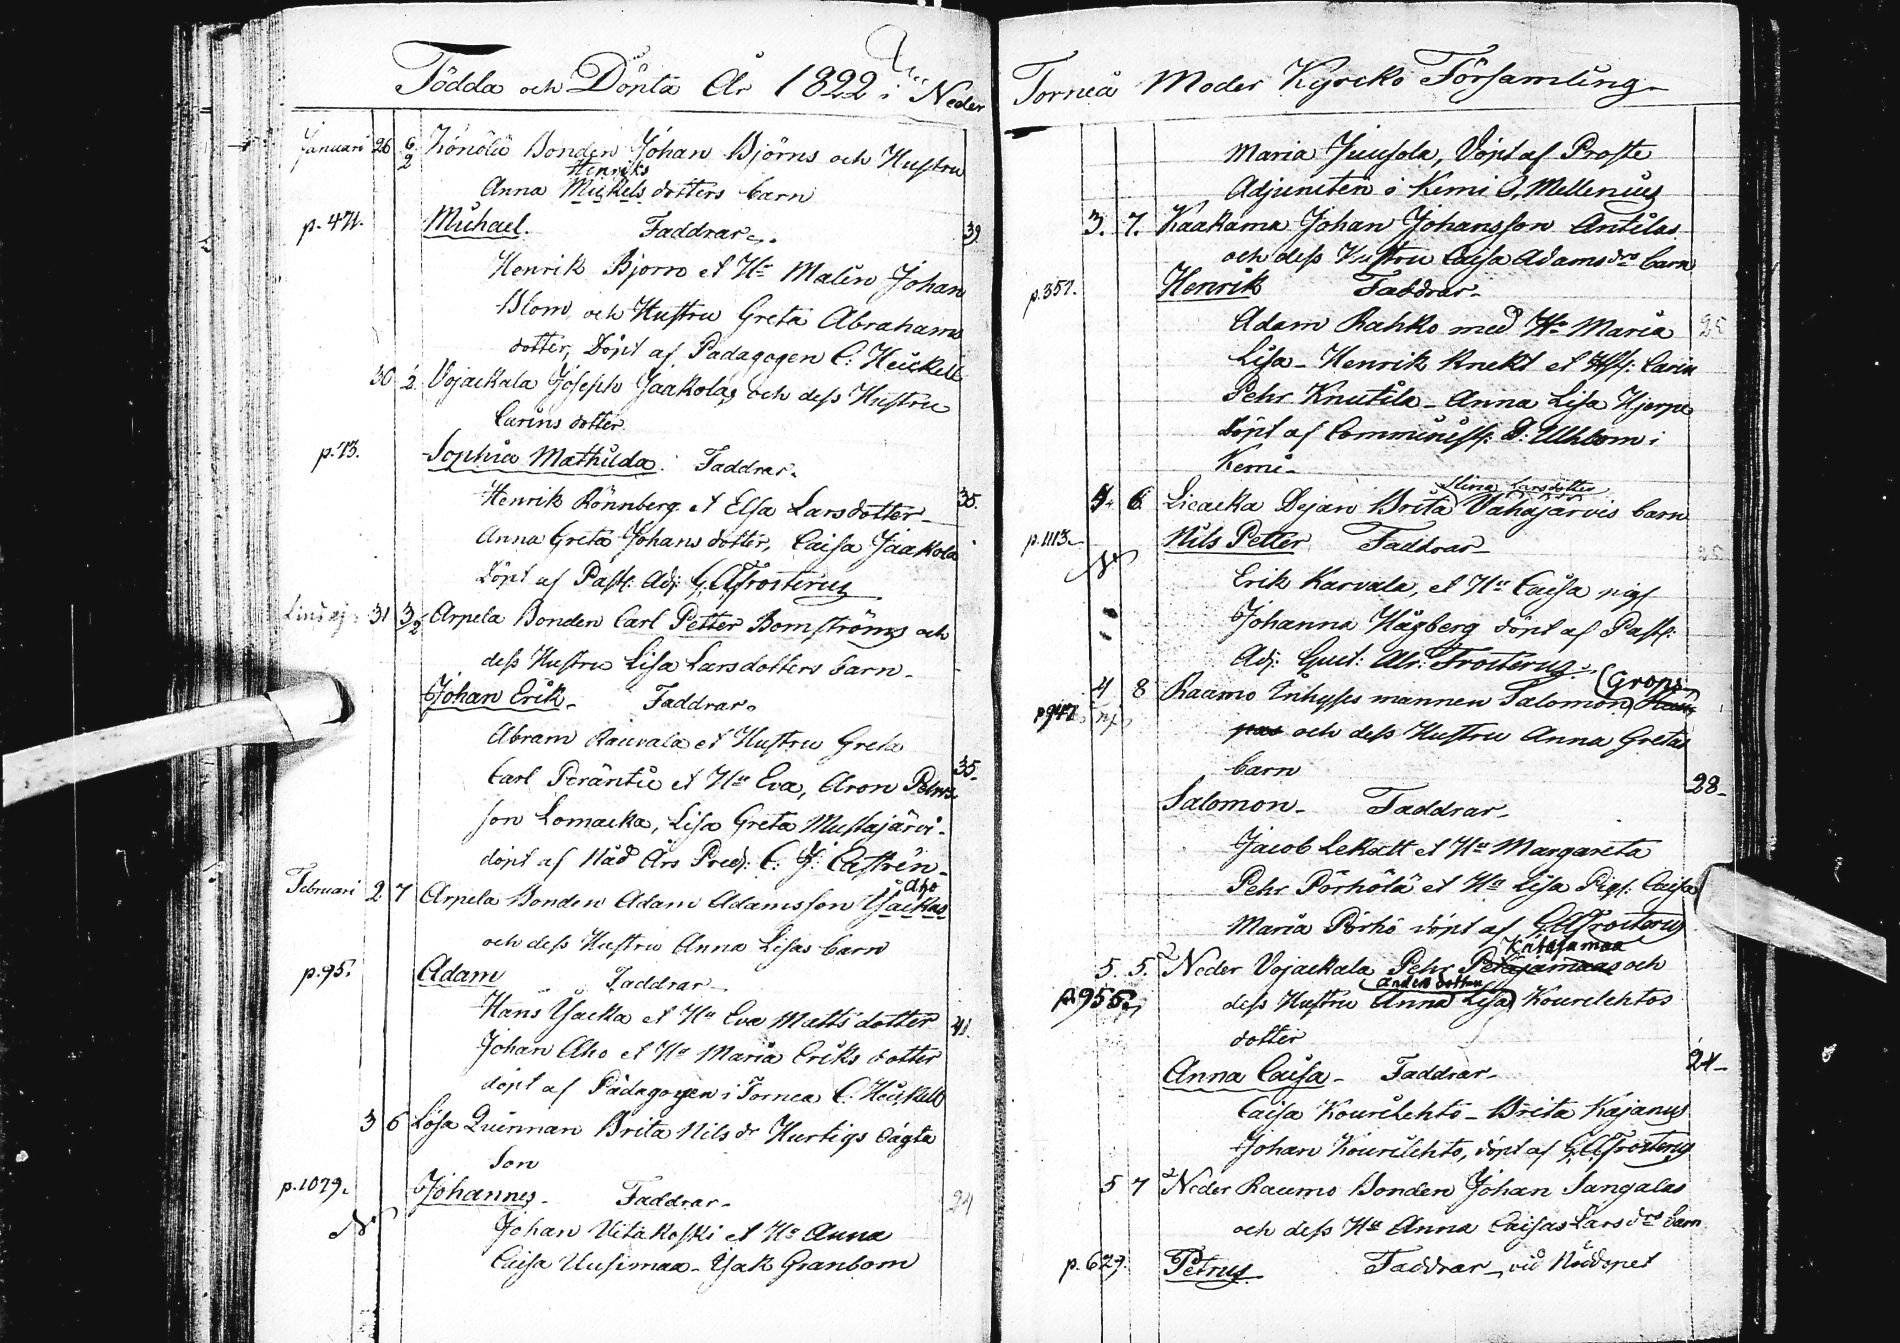 Födda och Döpta År 1822 i Neder
Januari 26 6/2 Könölä Bonden Johan Björns och Hustru
Henriks
Anna Mickels dotters barn
p. 471. Michael. Faddrar. 39
Henrik Bjorn et Hu Malin Johan
Blom och Hustru Greta Abrahams
dotter, Döpt af Pædagogen C. Heickell
30 2 Vojackala Joseph Jaakolas och dess Hustru
Carins dotter
p. 73. Sophia Mathilda. Faddrar.
Henrik Rönnberg et Elsa Larsdotter 35.
Anna Greta Johans dotter, Caisa Jaakola
döpt af Past: Adj: G. A. Frosterus
31 3/2 Arpela Bonden Carl Petter Bomströms och
dess Hustru Lisa Larsdotters barn
Johan Erik. Faddrar.
Abram Rauvala et Hustru Greta
Carl Peräntie et Hu Eva, Aron Pehrs 35.
son Lomacka, Lisa Greta Mustajärvi
döpt af Nåd Års Pred: C. J: Castrén
Aho
Februari 2 7 Arpela Bonden Adam Adamsson Ysackas
och dess Hustru Anna Lisas barn
p. 95. Adam Faddrar
Hans Ysacka et Hu Eva Matts dotter 41.
Johan Aho et Hu Maria Eriks dotter
döpt af Pædagogen i Tornea C. Heickell
3 6 Lösa Quinnan Brita Nils dr Hurtigs oägta
Son
p. 1079. Johannes. Faddrar. 24
Johan Vitakoski et Hu Anna
Caisa Uusimaa. Isak Granbom
Torneå Moder Kyrcko Församling
Maria Juusola, Döpt af Proste
Adjuncten i Kemi O, Mellenius
3. 7. Kaakama Johan Johansson Antilas
och dess Hustru Caisa Adams drs barn
p. 357. Henrik Faddrar. 25
Adam Rahko med Hu Maria
Lisa - Henrik Knekt et Hust: Carin
Pehr Knutila - Anna Lisa Hjerpe
döpt af Communist: D: Uhlbom i
Kemi
Stina Larsdotter
6 Licacka Dejan Brita Vähäjärvis barn
p. 1113 Nils Petter Faddrar
Erik Karvala, et Hu Caisa pig:
Johanna Hågberg döpt af Past:
Adj: Gust: Adr: Frosterus.
(Grops
4 8 Raumo Inhyses mannen Salomon
p 947 och dess Hustru Anna Gretas
barn 28
Salomon Faddrar
Jacob Lekatt et Hu Margareta
Pehr Pörhölä et Hu Lisa Pig: Caisa
Maria Pörhö döpt af G A Frosterus
Katajamaa
5. 5. Neder Vojackala Pehr Petäjämaas och
Anders dotter
p. 955. dess Hustru Anna Lisa Kourilehtos
dotter 24
Anna Caisa Faddrar
Caisa Kourilehto - Brita Kajanus
Johan Kourilehto, döpt af G A Frosterus
5 7 Neder Raumo Bonden Johan Sangalas
och dess Hu Anna Caisas Lars drs barn
p. 629. Petrus. Faddrar vid Nöddopet